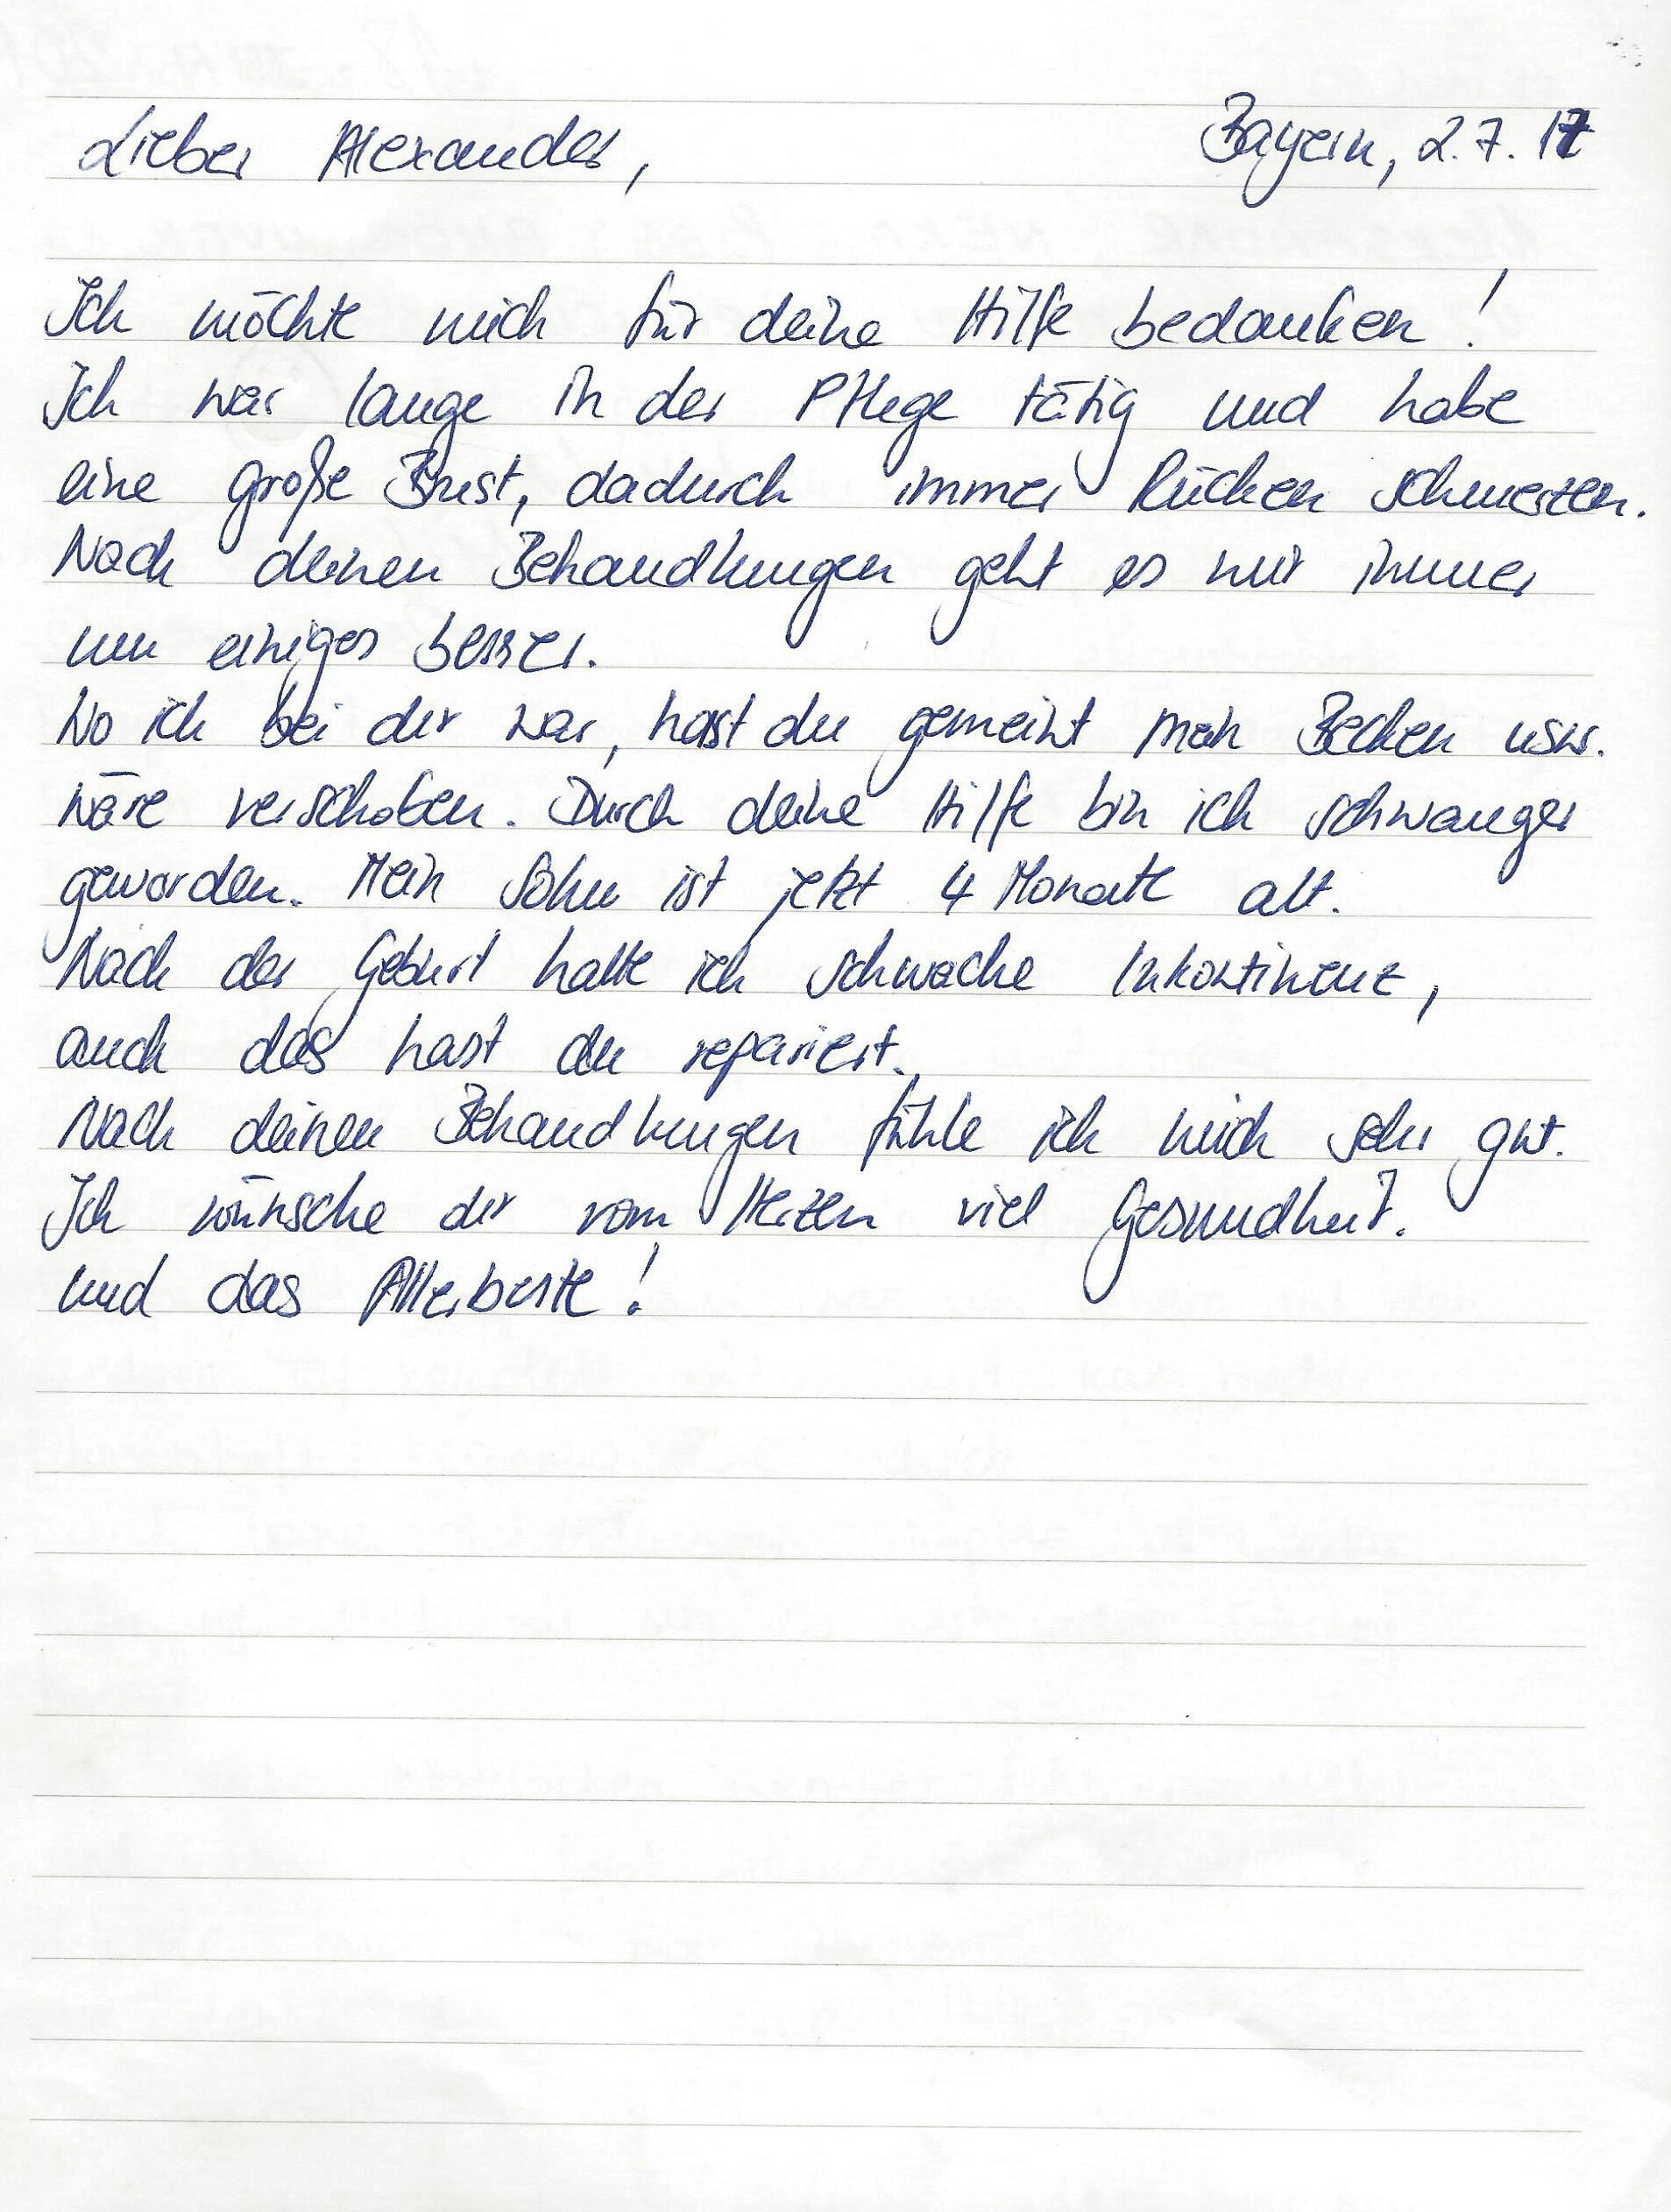 Lieber Alexander,
Bayern, 2.7.17
Ich möchte mich für deine Hilfe bedanken!
Ich war lange in der Pflege tätig und habe
eine große Brust, dadurch immer Rücken schmerzen.
Nach deinen Behandlungen geht es mir immer
um einiges besser.
Wo ich bei dir war, hast du gemeint mein Becken usw.
wäre verschoben. Durch deine Hilfe bin ich schwanger
geworden. Mein Sohn ist jetzt 4 Monate alt.
Nach der Geburt hatte ich schwache Inkontinenz,
auch das hast du repariert.
Nach deinen Behandlungen fühle ich mich sehr gut.
Ich wünsche dir vom Herzen viel Gesundheit.
und das Allerbeste!